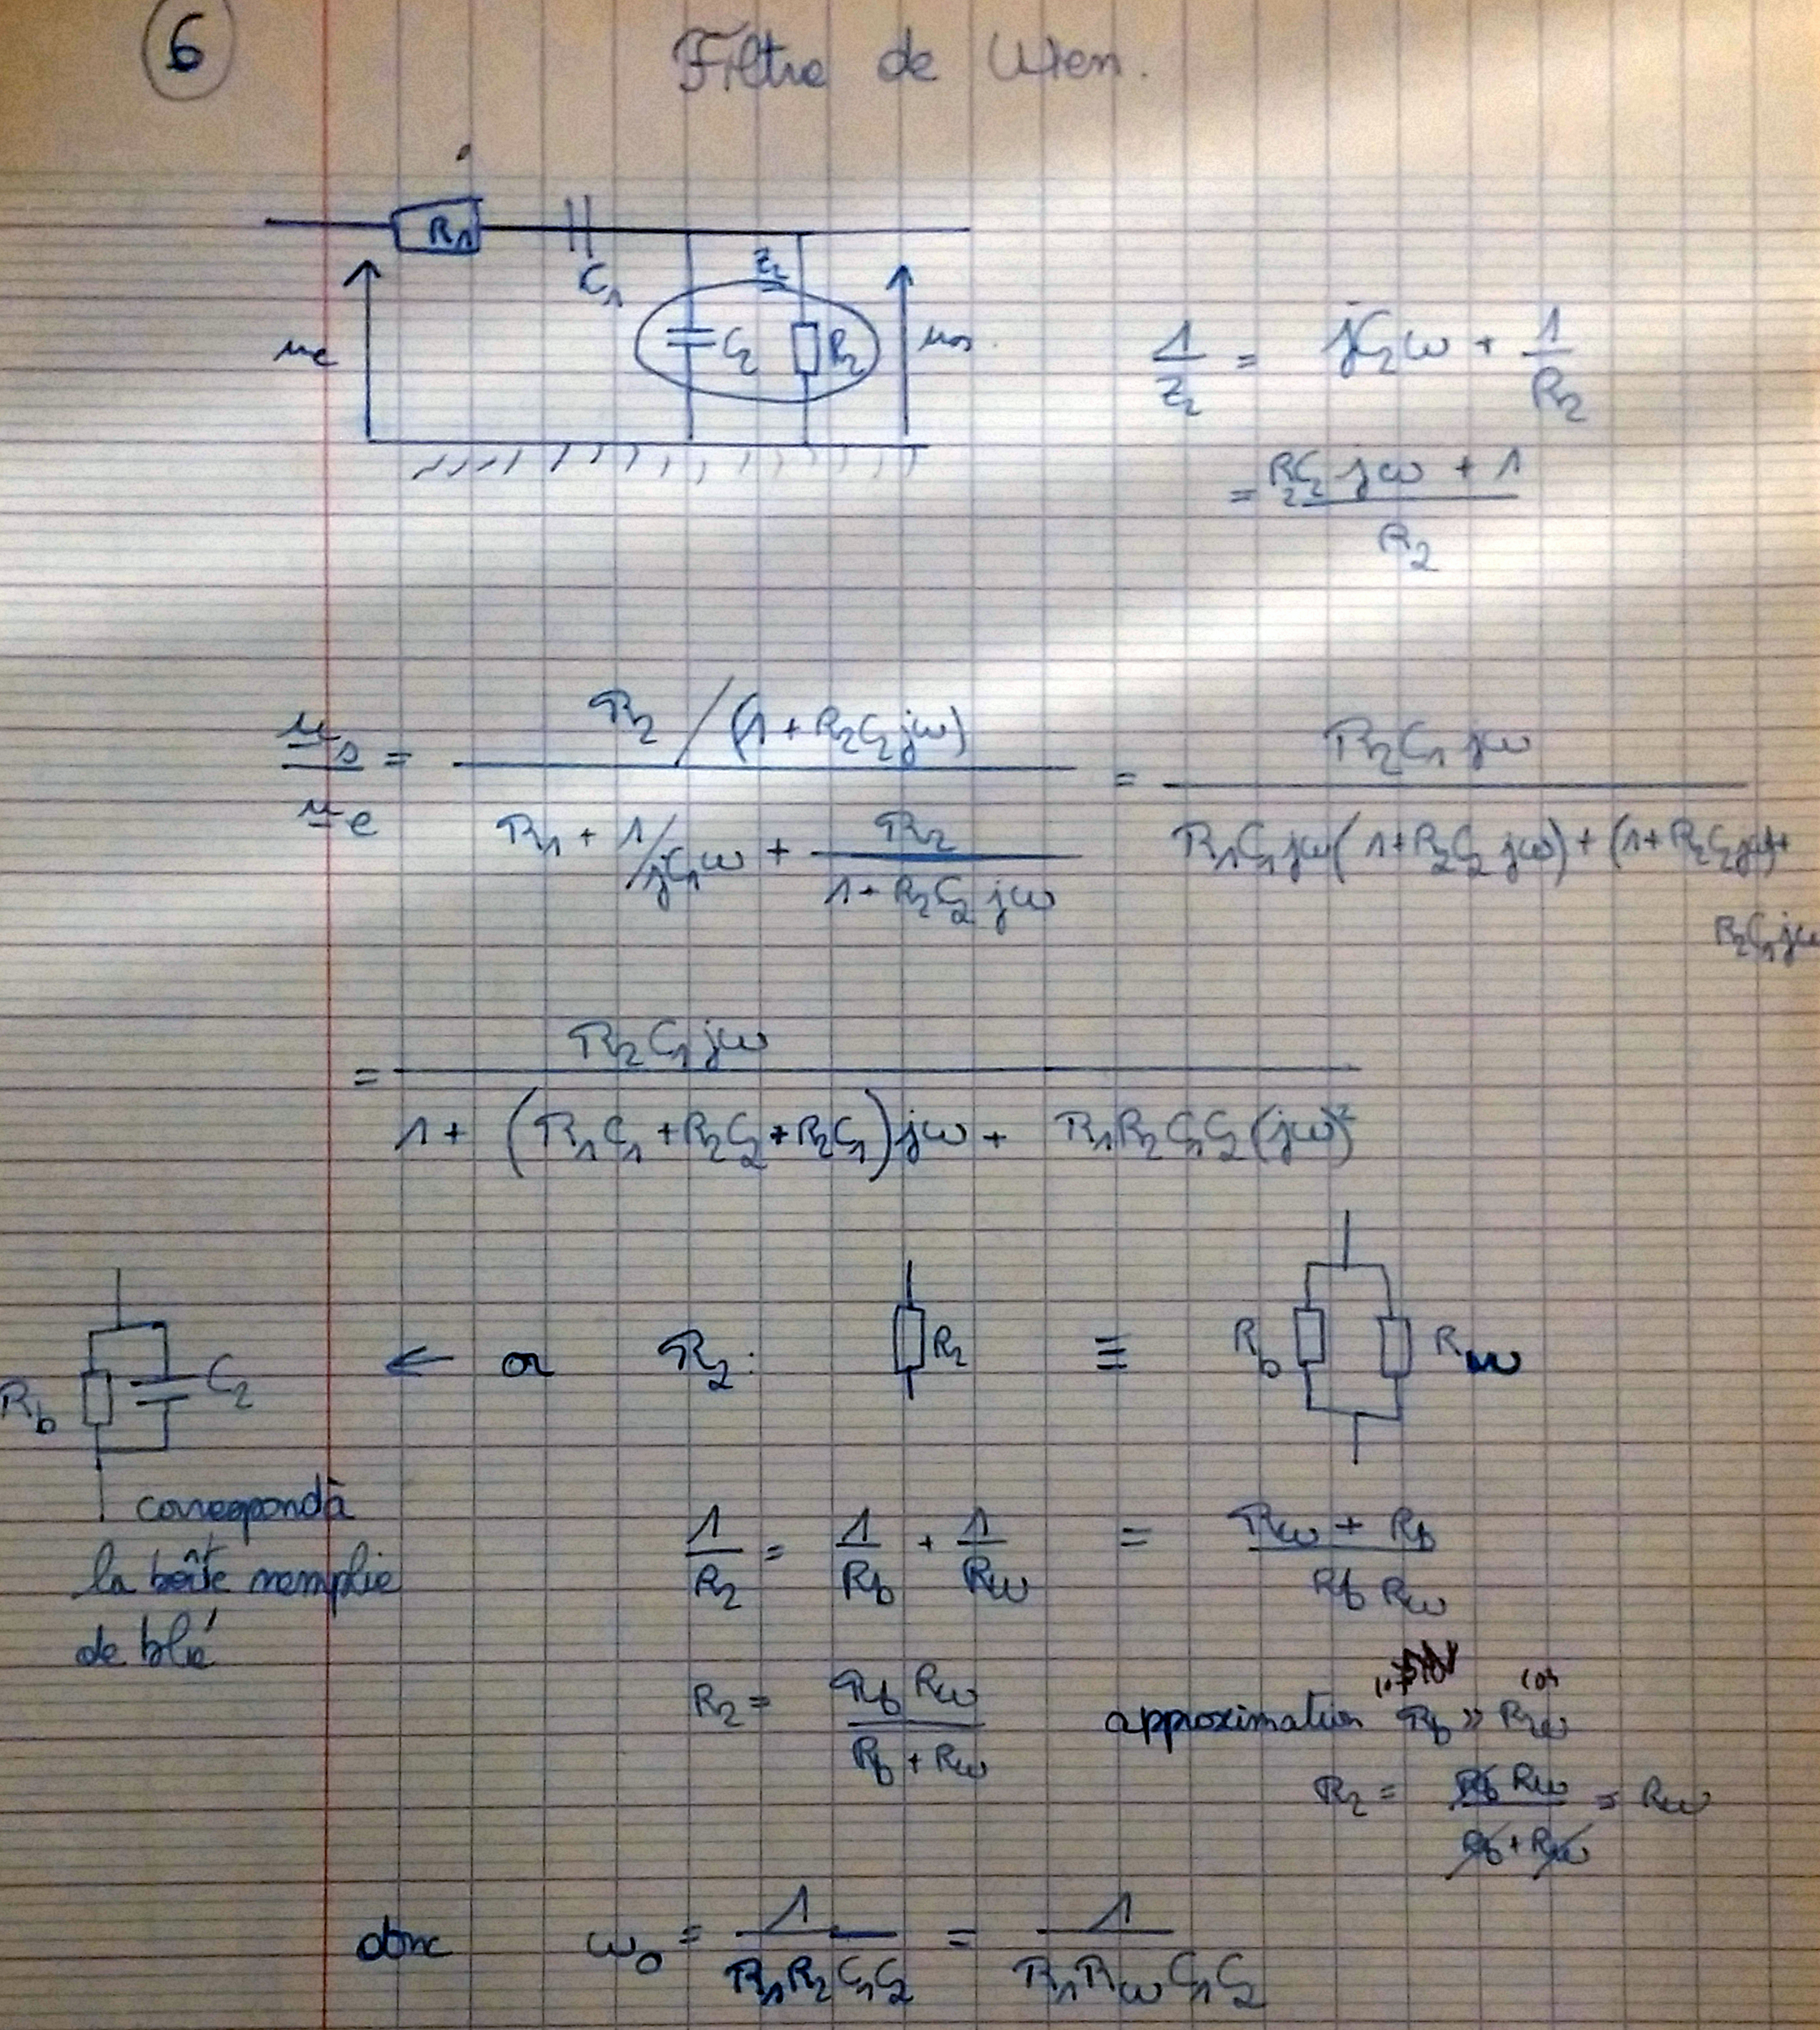 6
Filtre de Wien.
R1
C1
Z2
ue
C2
R2
us
1/Z2 = jC2ω + 1/R2
= (R2C2 jω + 1) / R2
us/ue = (R2 / (1 + R2C2jω)) / (R1 + 1/jC1ω + R2/(1 + R2C2jω)) = R2C1jω / (R1C1jω(1+R2C2jω) + (1+R2C2jω) + R2C1jω)
= R2C1jω / (1 + (R1C1 + R2C2 + R2C1)jω + R1R2C1C2(jω)²)
Rb C2 ← or R2 : R2 ≡ Rb Rw
correspond à
la boîte remplie
de blé
1/R2 = 1/Rb + 1/Rw = (Rw + Rb) / (Rb Rw)
R2 = Rb Rw / (Rb + Rw) approximation Rb >> Rw
R2 = Rb Rw / (Rb + Rw) = Rw
donc ω0 = 1/(R1R2C1C2) = 1/(R1RwC1C2)